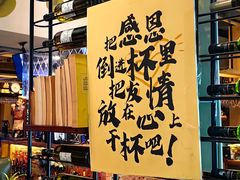 把感恩
倒进杯里
把友情
放在心上
干杯吧!